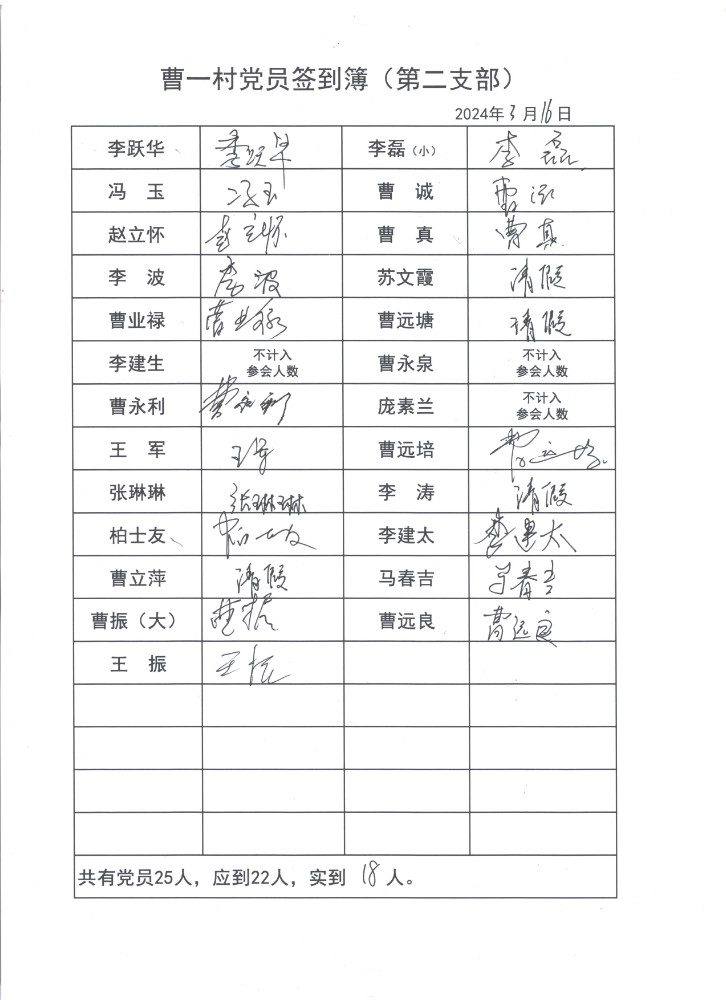 曹一村党员签到簿（第二支部）
2024年3月16日
李跃华 李跃华 李磊（小） 李磊
冯 玉 冯玉 曹 诚 曹诚
赵立怀 赵立怀 曹 真 曹真
李 波 李波 苏文霞 请假
曹业禄 曹业禄 曹远塘 请假
李建生 不计入 曹永泉 不计入
参会人数 参会人数
曹永利 曹永利 庞素兰 不计入
参会人数
王 军 王军 曹远培 曹远培
张琳琳 张琳琳 李 涛 请假
柏士友 柏士友 李建太 李建太
曹立萍 请假 马春吉 马春吉
曹振（大） 曹振 曹远良 曹远良
王 振 王振
共有党员25人，应到22人，实到 18 人。